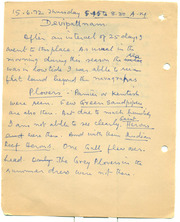 15-6-72 Thursday 5-45 to 8-30 A-M
Devipatnam
After an interval of 25 days I
went to the place. As usual in the
morning during this season the sea
was in low tide. I was able to see only
flat land beyond the
Plovers - or Kentish
were seen. Few Green Sandpipers
are also there. But due to
I am not able to see clearly. Herons,
are there. And with them Indian
Reef Heron. One Gull flew over
head. Only The Grey Plovers in the
summer dress were not there.